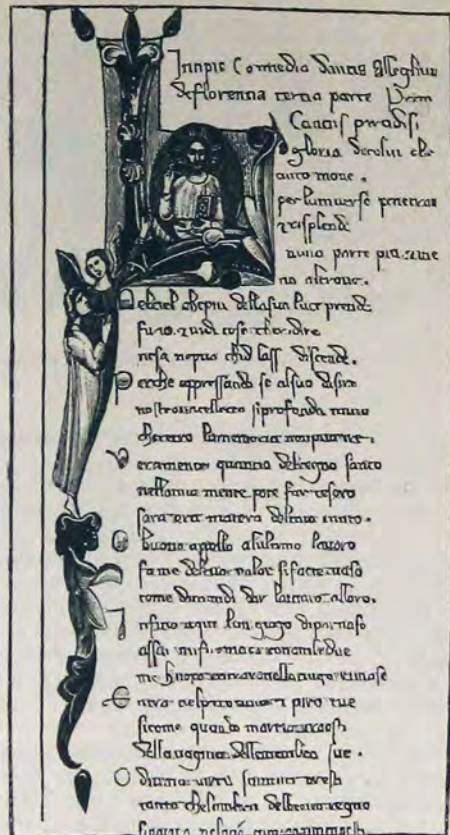 Comedia dantis alleghieri
de florentia parte
Cantus
gloria de colui che
tutto moue.
per luniuerso penetra
z risplende
parte piu z me
no altroue.
Nel ciel che piu della sua luce prende
fu io. z uidi cose che ridire
ne sa ne puo chi di lassu discende.
Perche appressando se al suo disire
nostro intellecto si profonda tanto
che retro la memoria non puo ire.
Ueramente quanto del regno santo
nella mia mente pote far tesoro
sara ora matera del mio canto.
O buono appollo a lultimo lauoro
fa me del tuo ualor si facto uaso
come dimandi dar lamato alloro.
Infino a qui lun giogo di parnaso
assai mi fu. ma or con amendue
me huopo
Entra nel pecto mio z spiri tue
si come quando marsia traesti
della uagina delle membra sue.
O diuina uirtu
tanto che lombra del beato regno